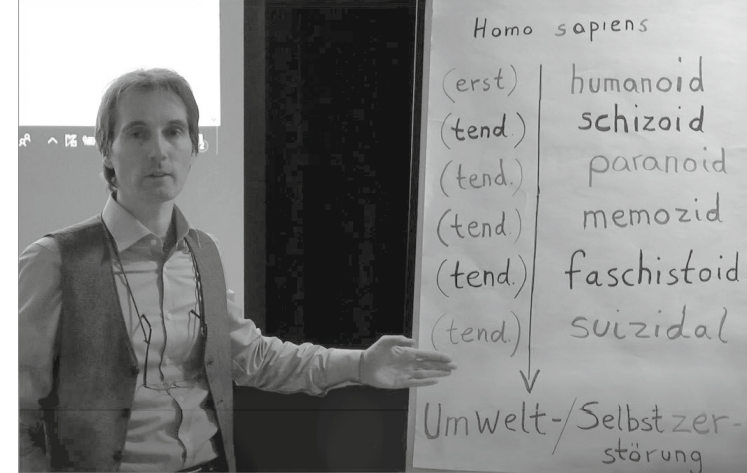 Homo sapiens
(erst) humanoid
(tend.) schizoid
(tend.) paranoid
(tend.) memozid
(tend.) faschistoid
(tend.) suizidal
Umwelt-/Selbstzer-
störung